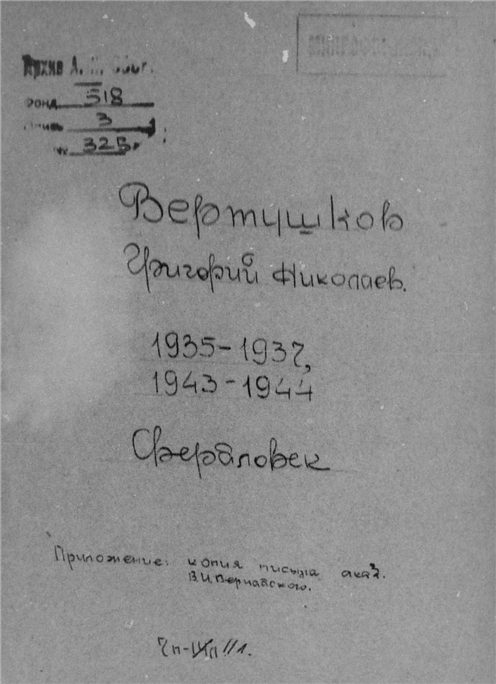 Архив А.
Фонд 518
3
325
Вертушков
Григорий Николаев.
1935-1937,
1943-1944
Свердловск
Приложение: копия письма акад.
В.И.Вернадского.